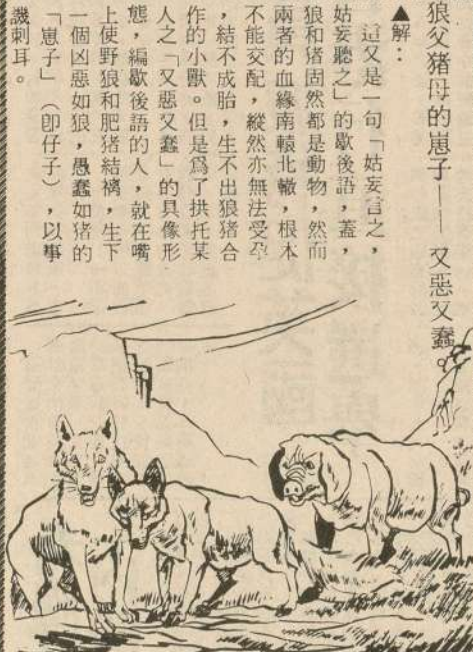 狼父猪母的崽子——又惡又蠢。
▲解：
這又是一句「姑妄言之，
姑妄聽之」的歇後語，蓋，
狼和猪固然都是動物，然而
兩者的血緣南轅北轍，根本
不能交配，縱然亦無法受孕
，結不成胎，生不出狼猪合
作的小獸。但是爲了拱托某
人之「又惡又蠢」的具像形
態，編歇後語的人，就在嘴
上使野狼和肥猪結褵，生下
一個凶惡如狼，愚蠢如猪的
「崽子」（卽仔子），以事
譏刺耳。